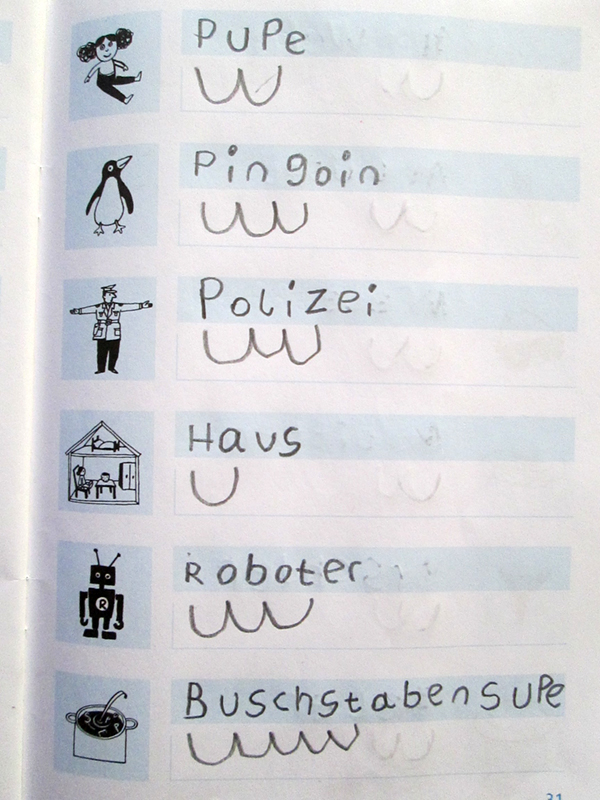 PuPe
Pingoin
Polizei
Haus
Roboter
R
BuschstabensuPe
31